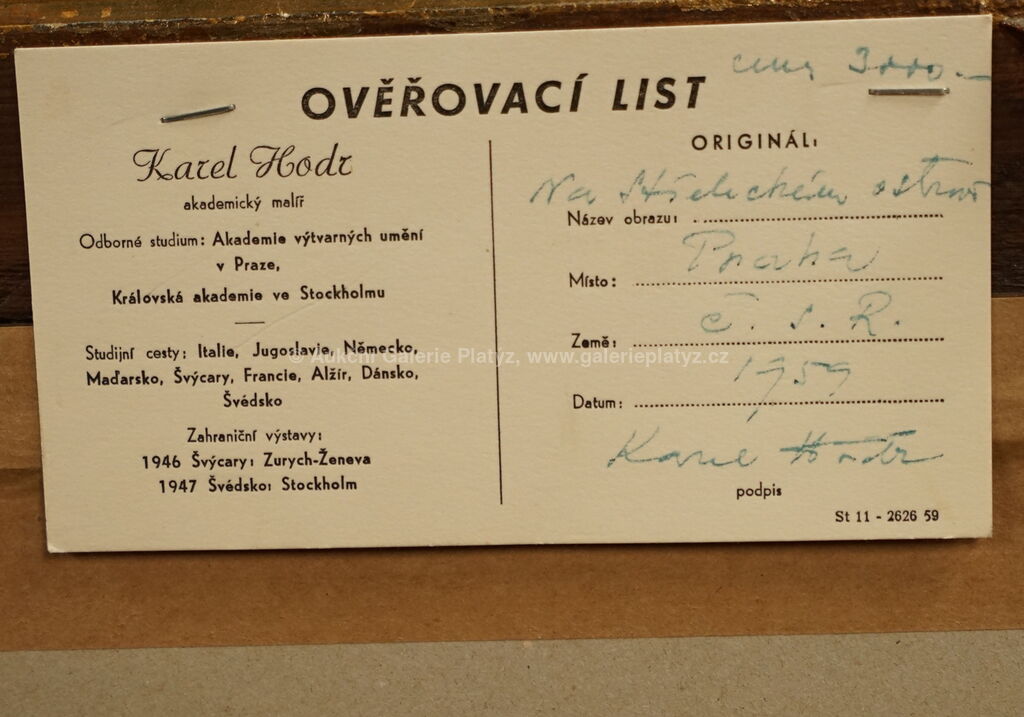 cena 3000.-
OVĚŘOVACÍ LIST
Karel Hodr
akademický malíř
Odborné studium: Akademie výtvarných umění
v Praze,
Královská akademie ve Stockholmu
Studijní cesty: Italie, Jugoslavie, Německo,
Maďarsko, Švýcary, Francie, Alžír, Dánsko,
Švédsko
Zahraniční výstavy:
1946 Švýcary: Zurych-Ženeva
1947 Švédsko: Stockholm
ORIGINÁL:
Na Střeleckém ostrově
Název obrazu:
Praha
Místo:
Č. S. R.
Země:
1959
Datum:
Karel Hodr
podpis
St 11 - 2626 59
© Aukční Galerie Platyz, www.galerieplatyz.cz